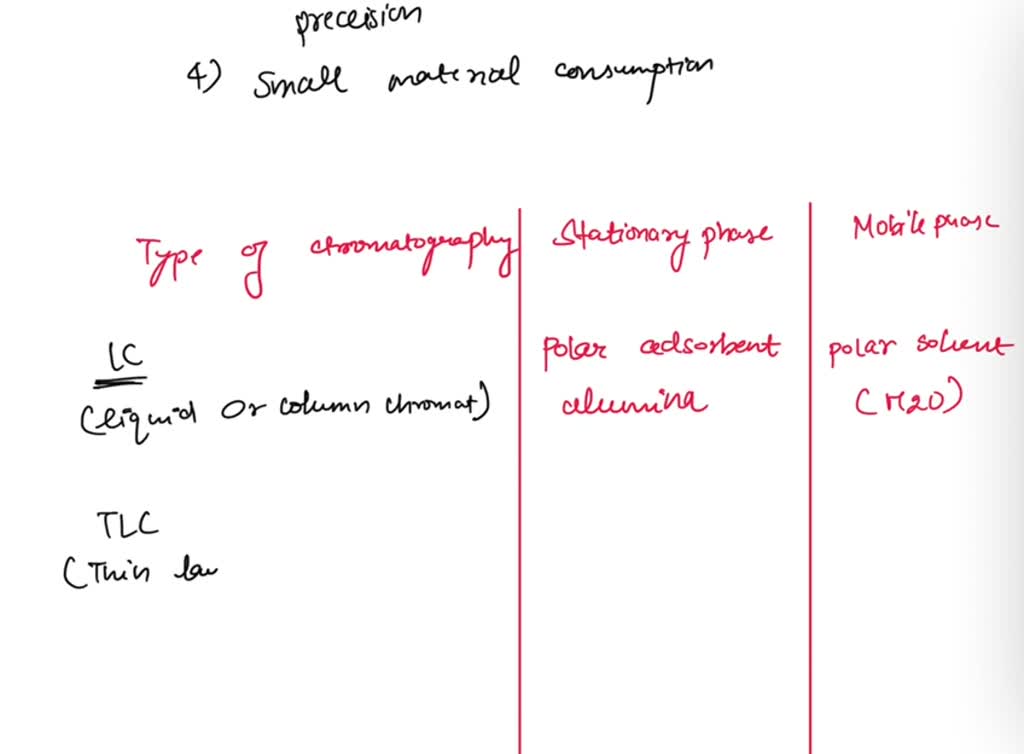 precision
4) Small material consumption
Type of chromatography Stationary phase Mobile phase
LC Polar adsorbent polar solvent
(liquid or column chromat) alumina (H2O)
TLC
(Thin lay